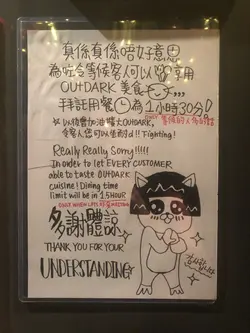 真係真係唔好意思
為咗令等候客人可以皆享用
OUTDARK 美食
拜託用餐為1小時30分!
ONLY 等候的人係多時
令客人您可以坐耐d!! Fighting!
Really Really Sorry!!!!!
In order to let EVERY CUSTOMER
able to taste OUTDARK
cuisine! Dining time
limit will be in 1.5HOUR
多謝體諒
THANK YOU FOR YOUR
UNDERSTANDING
감사합니다